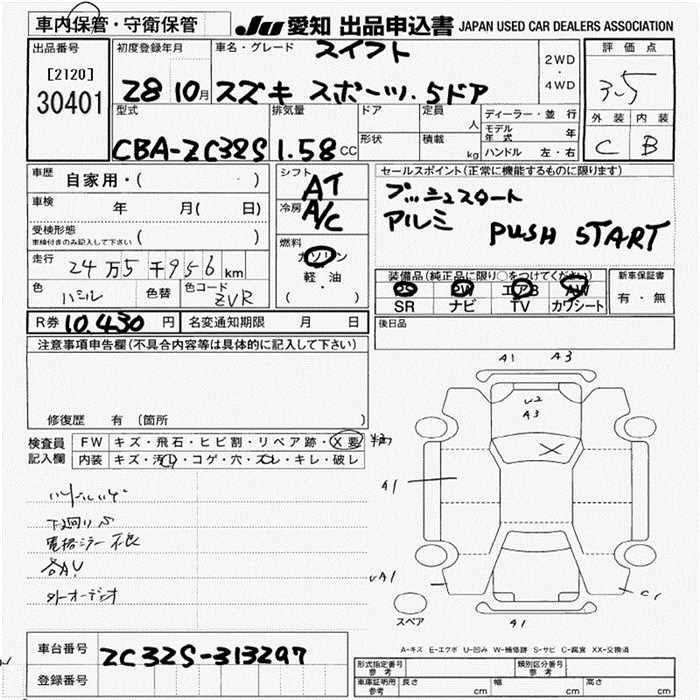 車内保管・守衛保管
JU 愛知 出品申込書 JAPAN USED CAR DEALERS ASSOCIATION
出品番号
[2120]
30401
初度登録年月
28 10月
車名・グレード スイフト
スズキ スポーツ. 5ドア
2WD
・
4WD
評価点
3.5
外装 内装
C B
型式
CBA-ZC32S
排気量
1.58 CC
ドア
形状
定員
人
積載
kg
ディーラー・並行
モデル年式 年
ハンドル 左・右
車歴 自家用・( )
車検 年 月( 日)
受検形態
車検付きのみ記入して下さい ( )
走行 24万5千956 km
色 パール 色替 色コード ZVR
シフト AT
冷房 A/C
燃料
ガソリン
・
軽・油
( )
セールスポイント(正常に機能するものに限ります)
プッシュスタート
アルミ PUSH START
装備品(純正品に限り○をつけてください)
PS PW エアB AW
SR ナビ TV カワシート
新車保証書
有・無
R券 10.430 円 名変通知期限 月 日
後日品
注意事項申告欄(不具合内容等は具体的に記入して下さい)
修復歴 有 (箇所 )
検査員
記入欄
FW キズ・飛石・ヒビ割・リペア跡・X要
内装 キズ・汚・コゲ・穴・スレ・キレ・破レ
下廻りS
電格ミラー不良
各AU
外オーディオ
A1 A3
U2
A3
X
A1
UA1
C1
A1
スペア
A-キズ E-エクボ U-凹み W-補修跡 S-サビ C-腐食 XX-交換済
車台番号 ZC32S-313297
登録番号
形式指定番号 参考
類別区分番号 参考
車庫証明用 参考 長さ cm 幅 cm 高さ cm